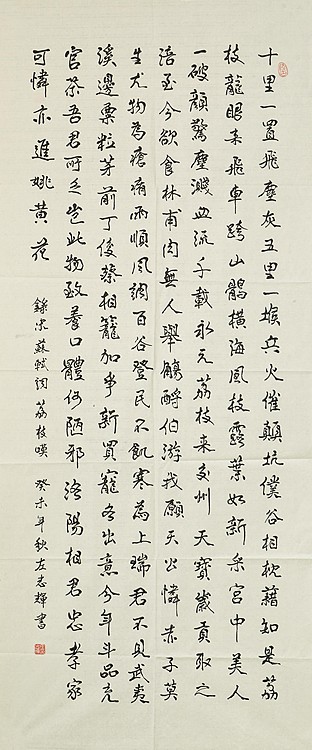 十里一置飛塵灰五里一堠兵火催顛坑僕谷相枕藉知是荔
枝龍眼來飛車跨山鶻橫海風枝露葉如新采宮中美人
一破顏驚塵濺血流千載永元荔枝來交州天寶歲貢取之
涪至今欲食林甫肉無人舉觴酹伯游我願天公憐赤子莫
生尤物為瘡痏雨順風調百谷登民不飢寒為上瑞君不見武夷
溪邊粟粒芽前丁後蔡相籠加爭新買寵各出意今年斗品充
官茶吾君所乏豈此物致養口體何陋邪洛陽相君忠孝家
可憐亦進姚黃花
錄宋蘇軾詞荔枝嘆 癸未年秋左志輝書